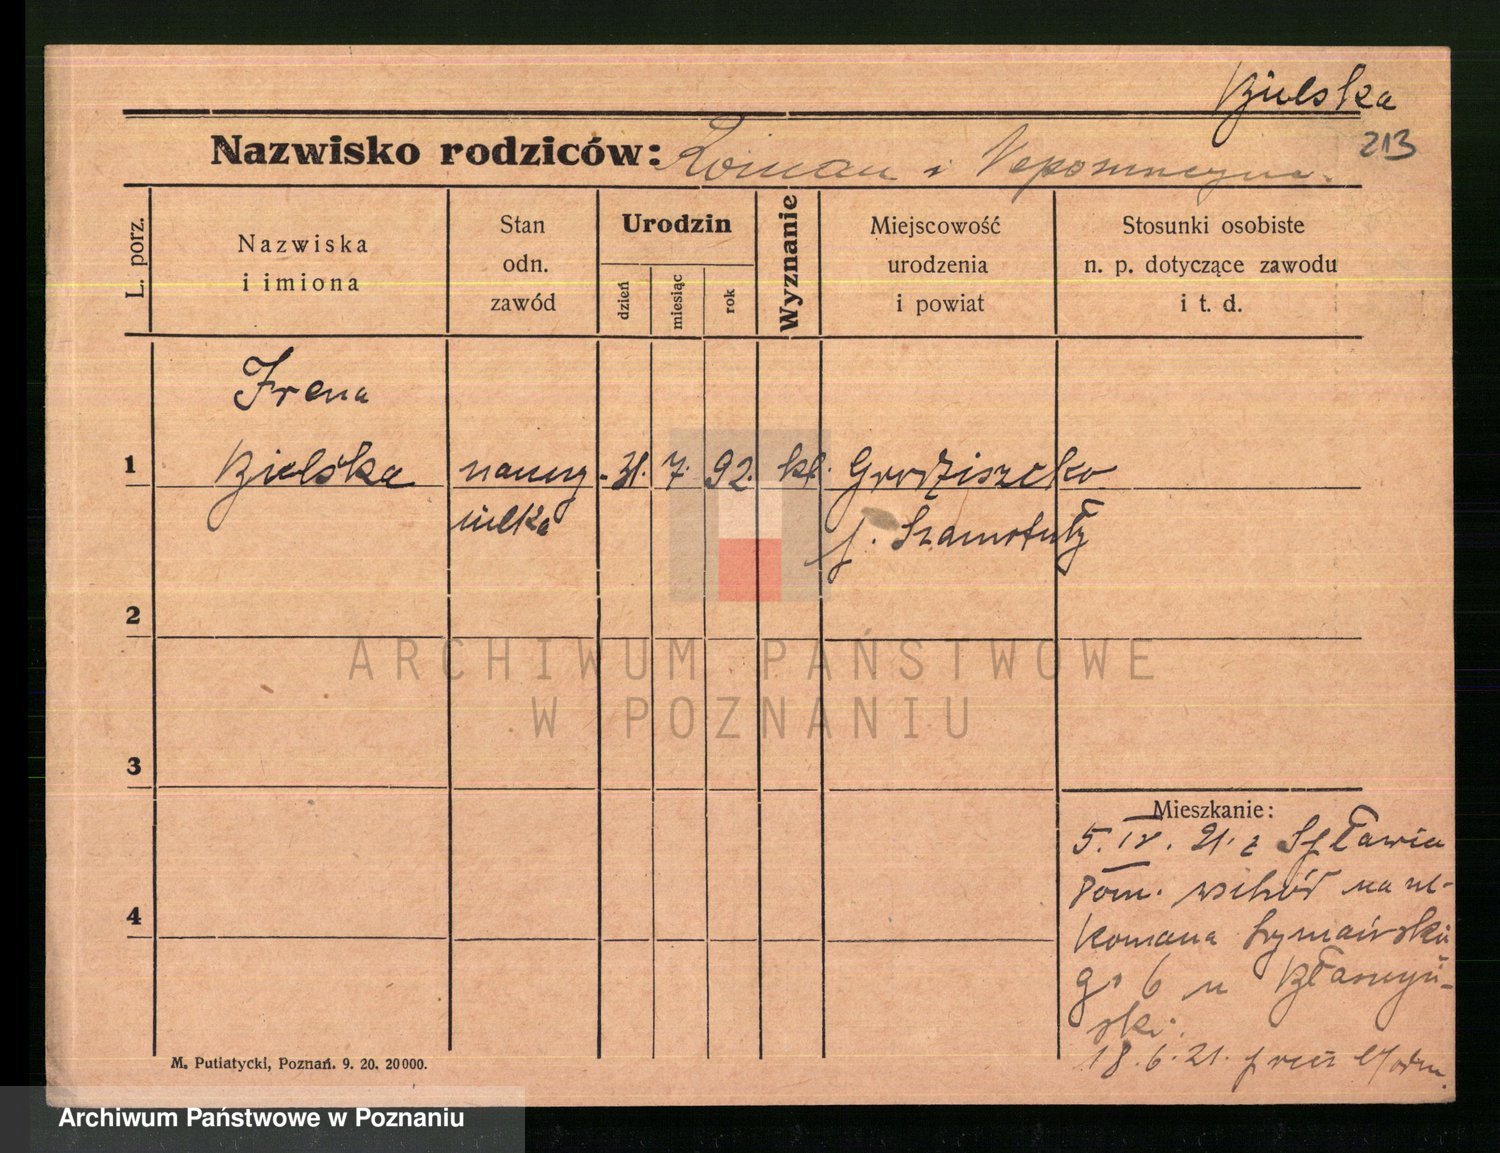 Bielska
213
Nazwisko rodziców: Roman i Nepomucyna.
L. porz.
Nazwiska
i imiona
Stan
odn.
zawód
Urodzin
dzień
miesiąc
rok
Wyznanie
Miejscowość
urodzenia
i powiat
Stosunki osobiste
n. p. dotyczące zawodu
i t. d.
Irena
1 Bielska nauczy- 31. 7. 92. kt. Grodziszcko
cielka p. Szamotuły
2
ARCHIWUM PAŃSTWOWE
W POZNANIU
3
Mieszkanie:
5. IV. 21. z Spławia
4
Romana Szymańskie
go 6 u Błaszczyń-
ski.
18. 6. 21.
M. Putiatycki, Poznań. 9. 20. 20000.
Archiwum Państwowe w Poznaniu